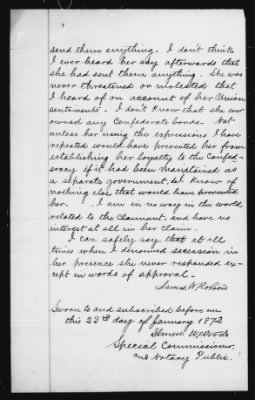 send them anything. I don't think
I ever heard her say afterwards that
she had sent them anything. She was
never threatened or molested that
I heard of on account of her Union
sentiments. I don't know that she ever
owned any Confederate bonds. Not
unless her using the expressions I have
repeated would have prevented her from
establishing her loyalty to the Confed-
eracy if it had been maintained as
a separate government, I know of
nothing else that would have prevented
her. I am in no way in the world
related to the claimant, and have no
interest at all in her claim.
I can safely say that at all
times when I denounced secession in
her presence she never responded ex-
cept in words of approval.
James W.
Sworn to and subscribed before me
this 23d day of January 1872
W. Woods
Special Commissioner
and Notary Public.